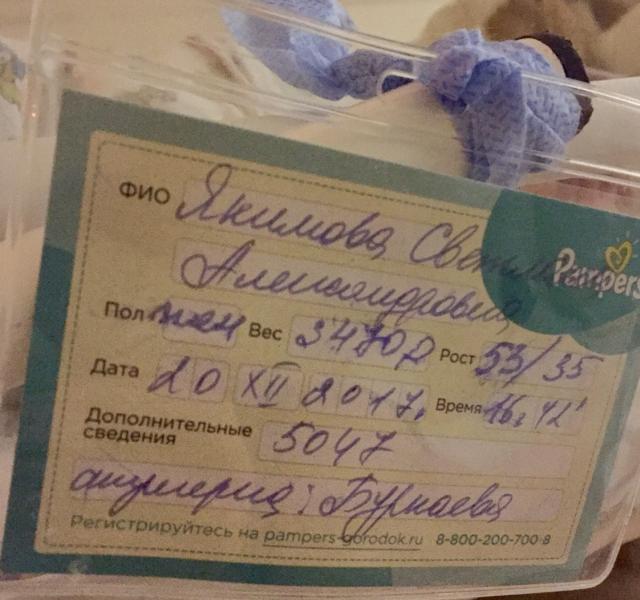 ФИО Якимова Светлана
Александровна
Pampers
Пол жен Вес 3470г Рост 53/35
Дата 20 XII 2017г. Время 16:42'
Дополнительные
сведения 5047
акушерка: Бурнаева
Регистрируйтесь на pampers-gorodok.ru 8-800-200-700-8